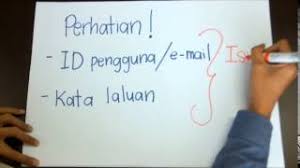 Perhatian!
- ID pengguna/e-mail
- Kata laluan
Is